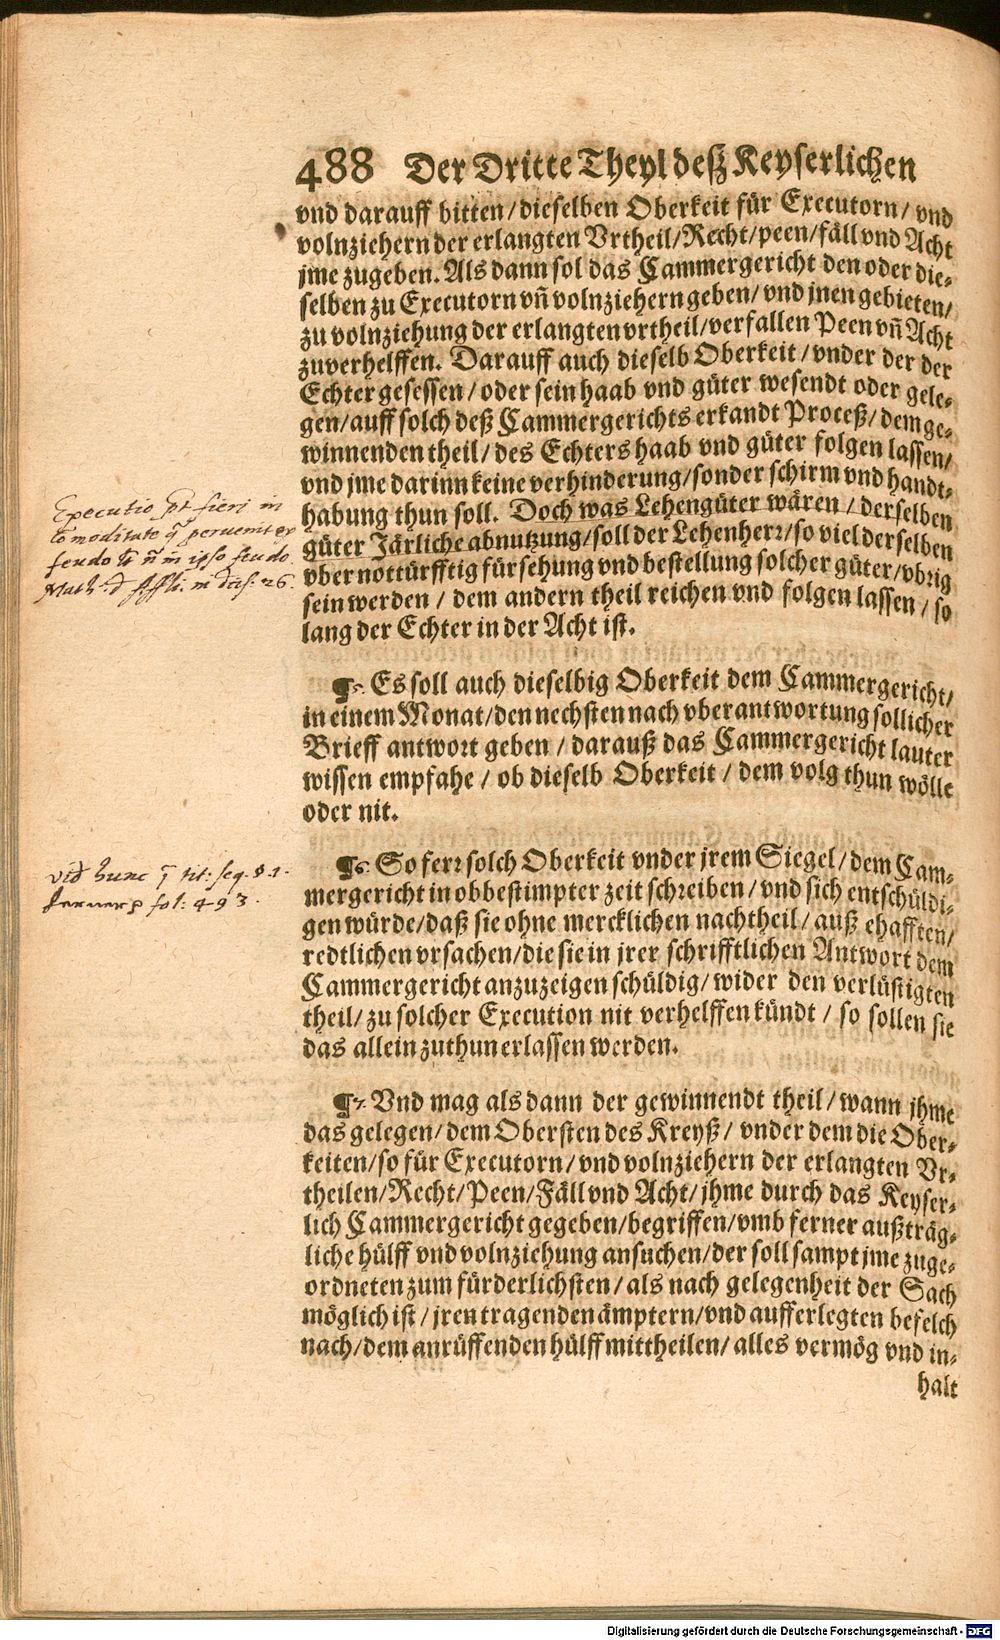 488 Der Dritte Theyl deß Keyserlichen
vnd darauff bitten/dieselben Oberkeit für Executorn/ vnd
volnziehern der erlangten Vrtheil/Recht/peen/fäll vnd Acht
jme zugeben. Als dann sol das Cammergericht den oder die-
selben zu Executorn vñ volnziehern geben/ vnd jnen gebieten/
zu volnziehung der erlangten vrtheil/verfallen Peen vñ Acht
zuverhelffen. Darauff auch dieselb Oberkeit/ vnder der der
Echter gesessen/ oder sein haab vnd güter wesendt oder gele-
gen/auff solch deß Cammergerichts erkandt Proceß/ dem ge-
winnenden theil/ des Echters haab vnd güter folgen lassen/
vnd jme darinn keine verhinderung/sonder schirm vnd handt-
habung thun soll. Doch was Lehengüter wären/ derselben
güter Järliche abnutzung/soll der Lehenherr/so viel derselben
vber nottürfftig fürsehung vnd bestellung solcher güter/vbrig
sein werden/ dem andern theil reichen vnd folgen lassen/ so
lang der Echter in der Acht ist.
Executio pt fieri in
feudo
26.
¶ Es soll auch dieselbig Oberkeit dem Cammergericht/
in einem Monat/den nechsten nach vberantwortung sollicher
Brieff antwort geben/ darauß das Cammergericht lauter
wissen empfahe/ ob dieselb Oberkeit/ dem volg thun wölle
oder nit.
¶ So ferr solch Oberkeit vnder jrem Siegel/dem Cam-
mergericht in obbestimpter zeit schreiben/ vnd sich entschüldi-
gen würde/daß sie ohne mercklichen nachtheil/ auß ehafften/
redtlichen vrsachen/die sie in jrer schrifftlichen Antwort dem
Cammergericht anzuzeigen schüldig/ wider den verlüstigten
theil/ zu solcher Execution nit verhelffen kündt/ so sollen sie
das allein zuthun erlassen werden.
hunc tit: seq. §. 1.
fol: 493.
¶ Vnd mag als dann der gewinnendt theil/ wann jhme
das gelegen/ dem Obersten des Kreyß/ vnder dem die Ober-
keiten/so für Executorn/ vnd volnziehern der erlangten Vr-
theilen/Recht/Peen/Fäll vnd Acht/ jhme durch das Keyser-
lich Cammergericht gegeben/begriffen/vmb ferner außträg-
liche hülff vnd volnziehung ansuchen/der soll sampt jme zuge-
ordneten zum fürderlichsten/ als nach gelegenheit der Sach
möglich ist/ jren tragenden ämptern/vnd aufferlegten befelch
nach/dem anrüffenden hülff mittheilen/ alles vermög vnd in-
halt
Digitalisierung gefördert durch die Deutsche Forschungsgemeinschaft - DFG